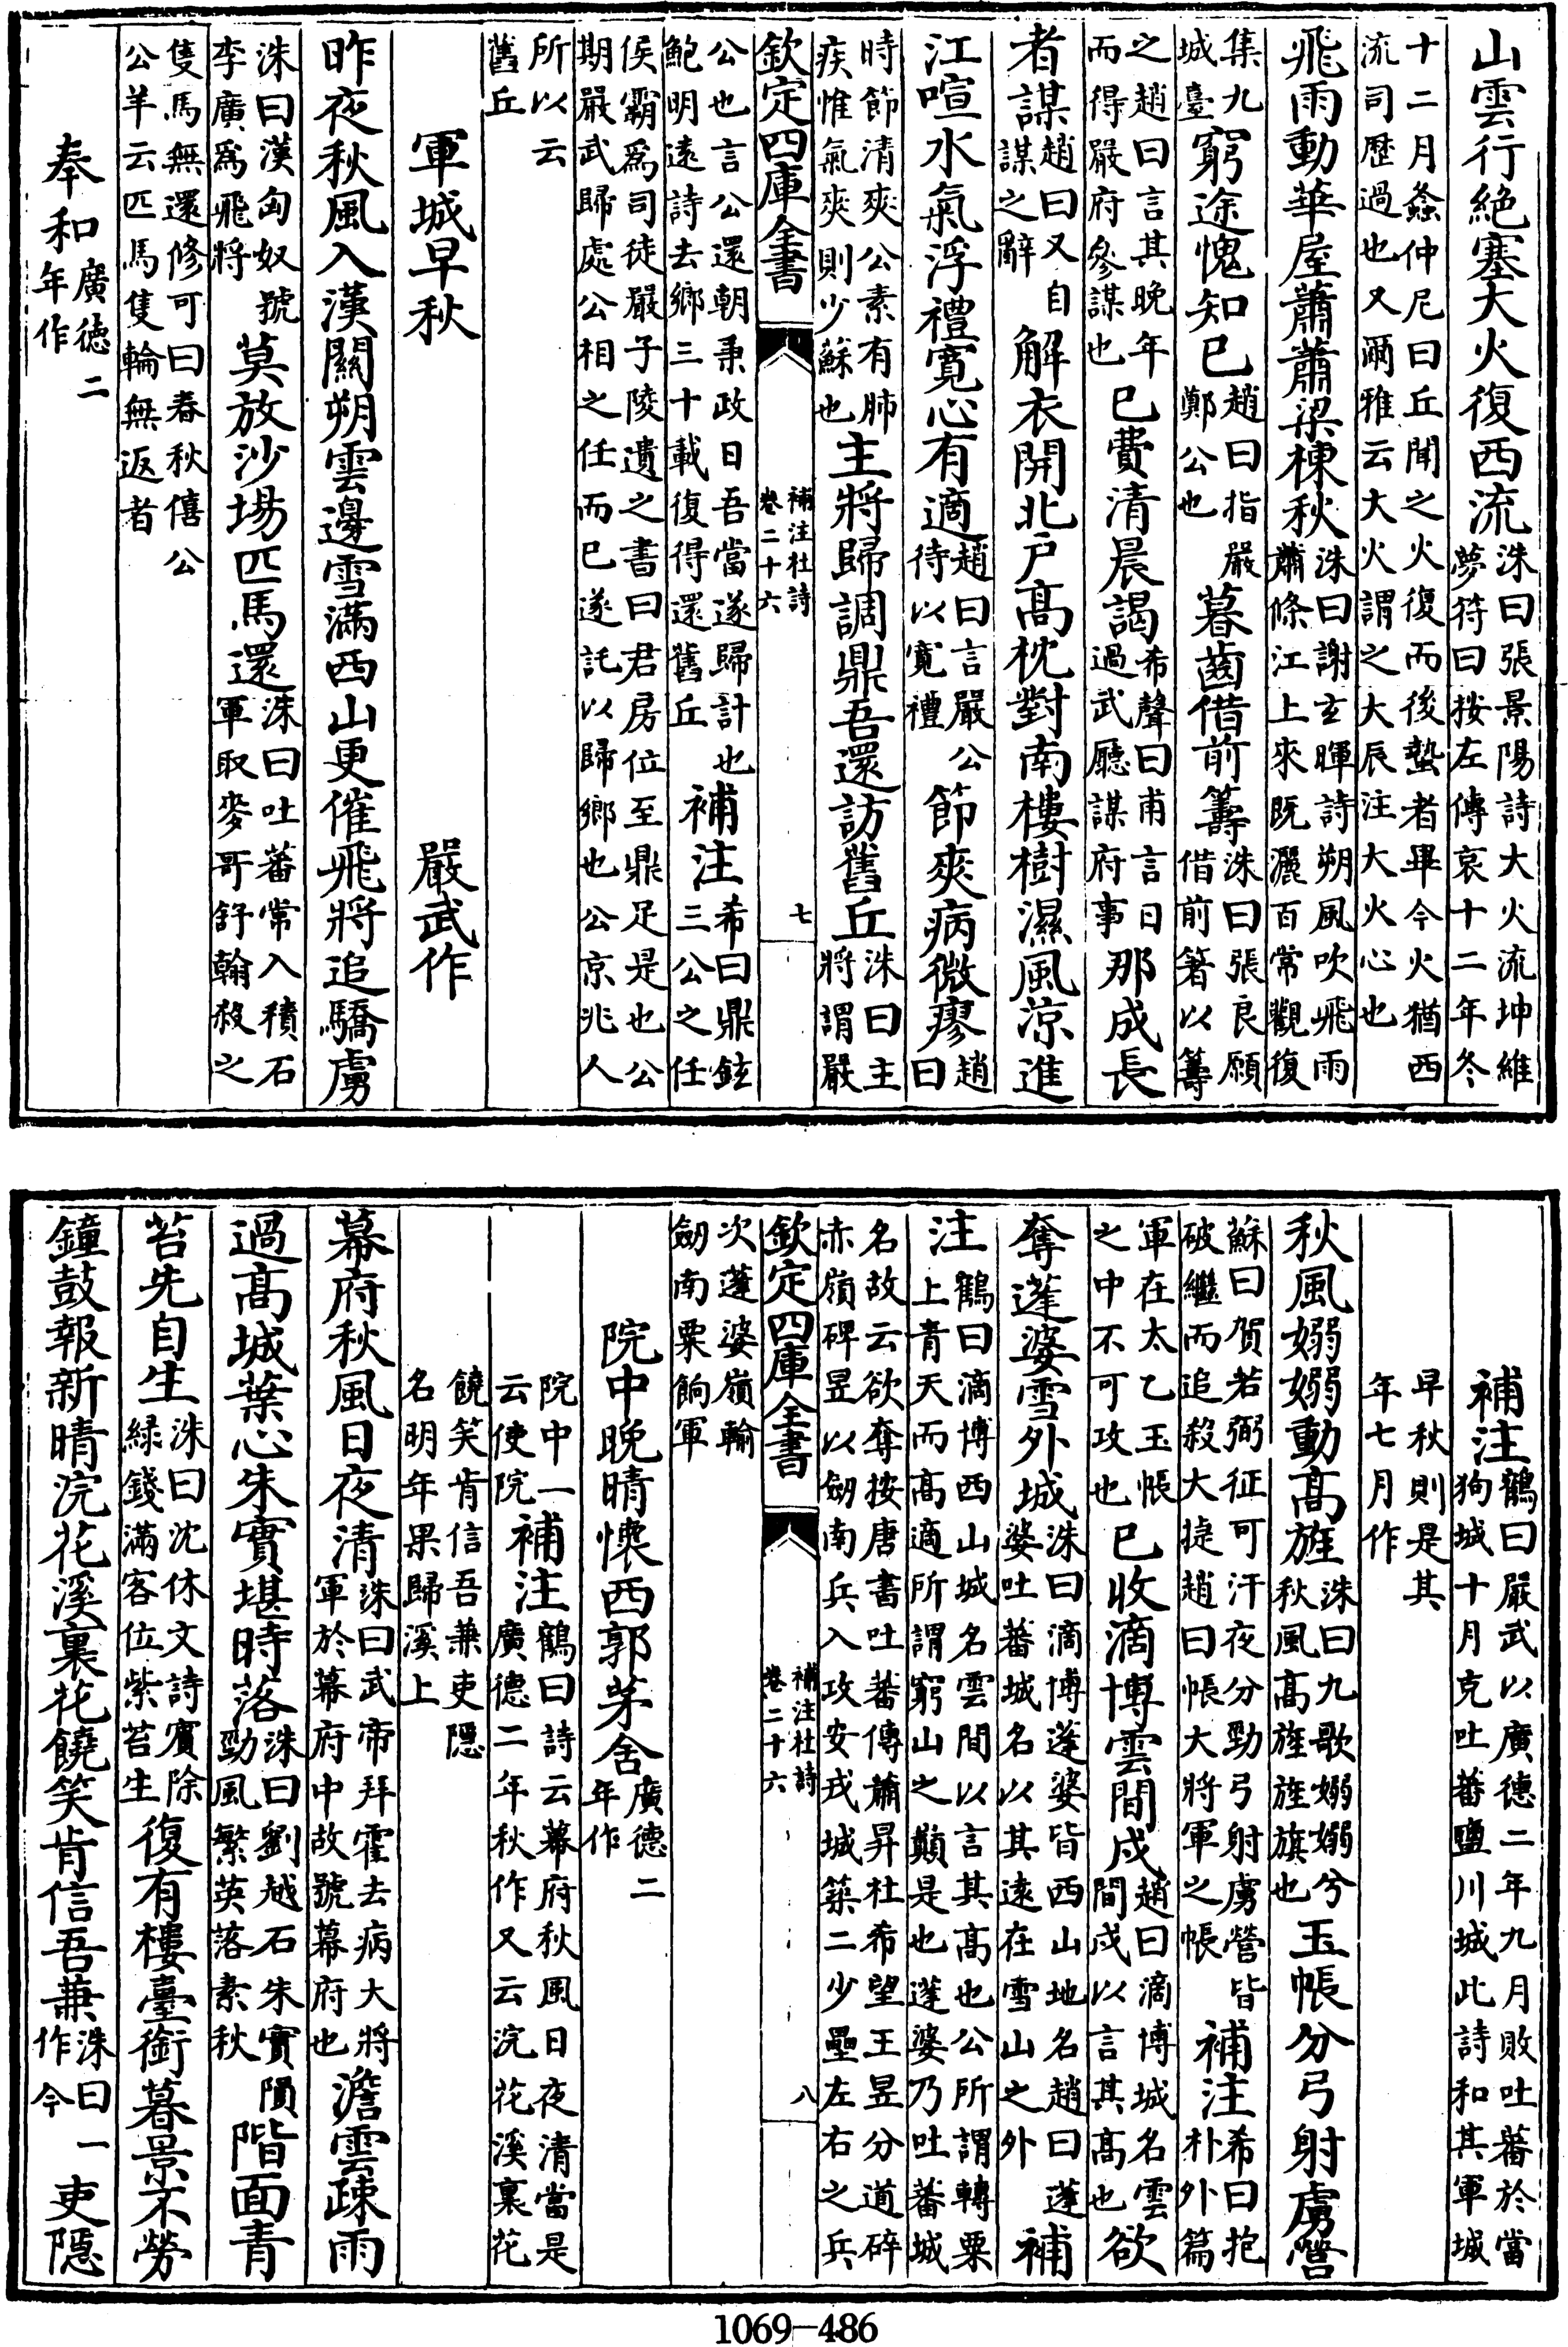 山雲行絶塞大火復西流洙曰張景陽詩大火流坤維夢符曰按左傳哀十二年冬
十二月螽仲尼曰丘聞之火復而後蟄者畢今火猶西流司歴過也又爾雅云大火謂之大辰注大火心也
飛雨動華屋蕭蕭梁棟秋洙曰謝玄暉詩朔風吹飛雨蕭條江上來既灑百常觀復
集九城臺窮途愧知已趙曰指嚴鄭公也暮齒借前籌洙曰張良願借前箸以籌
之趙曰言其晚年而得嚴府參謀也已費清晨謁希聲曰甫言日過武廳謀府事那成長
者謀趙曰又自謀之辭解衣開北户髙枕對南樓樹濕風涼進
江喧水氣浮禮寛心有適趙曰言嚴公待以寛禮節爽病微瘳趙曰
時節清爽公素有肺疾惟氣爽則少蘇也主將歸調鼎吾還訪舊丘洙曰主將謂嚴
欽定四庫全書 補注杜詩卷二十六 七
公也言公還朝秉政日吾當遂歸計也鮑明逺詩去鄉三十載復得還舊丘補注希曰鼎鉉三公之任
侯霸爲司徒嚴子陵遺之書曰君房位至鼎足是也公期嚴武歸處公相之任而已遂託以歸鄉也公京兆人
所以云舊丘
軍城早秋 嚴武作
昨夜秋風入漢關朔雲邊雪滿西山更催飛將追驕虜
洙曰漢匈奴號李廣爲飛將莫放沙場匹馬還洙曰吐蕃常入積石軍取麥哥舒翰殺之
隻馬無還修可曰春秋僖公公羊云匹馬隻輪無返者
奉和廣徳二年作
補注鶴曰嚴武以廣德二年九月敗吐蕃於當狗城十月克吐蕃鹽川城此詩和其軍城
早秋則是其年七月作
秋風嫋嫋動髙旌洙曰九歌嫋嫋兮秋風髙旌旌旗也玉帳分弓射虜營
蘇曰賀若弼征可汗夜分勁弓射虜營皆破繼而追殺大捷趙曰帳大將軍之帳補注希曰抱朴外篇
軍在太乙玉帳之中不可攻也已收滴博雲間戍趙曰滴博城名雲間戍以言其髙也欲
奪蓬婆雪外城洙曰滴博蓬婆皆西山地名趙曰蓬婆吐蕃城名以其逺在雪山之外補
注鶴曰滴博西山城名雲間以言其髙也公所謂轉粟上青天而髙適所謂窮山之巔是也蓬婆乃吐蕃城
名故云欲奪按唐書吐蕃傳蕭炅杜希望王昱分道碎赤嶺碑昱以劒南兵入攻安戎城築二少壘左右之兵
次蓬婆嶺輸劒南粟餉軍
欽定四庫全書 補注杜詩卷二十六 八
院中晚晴懷西郭茅舍廣德二年作
院中一云使院補注鶴曰詩云幕府秋風日夜清當是廣德二年秋作又云浣花溪裏花
饒笑肯信吾兼吏隱名明年果歸溪上
幕府秋風日夜清洙曰武帝拜霍去病大將軍於幕府中故號幕府也澹雲疎雨
過髙城葉心朱實堪時落洙曰劉越石朱實隕勁風繁英落素秋階面青
苔先自生洙曰沈休文詩賓除緑錢滿客位紫苔生復有樓臺銜暮景不勞
鐘鼓報新晴浣花溪裏花饒笑肯信吾兼洙曰一作今吏隱
1069—486